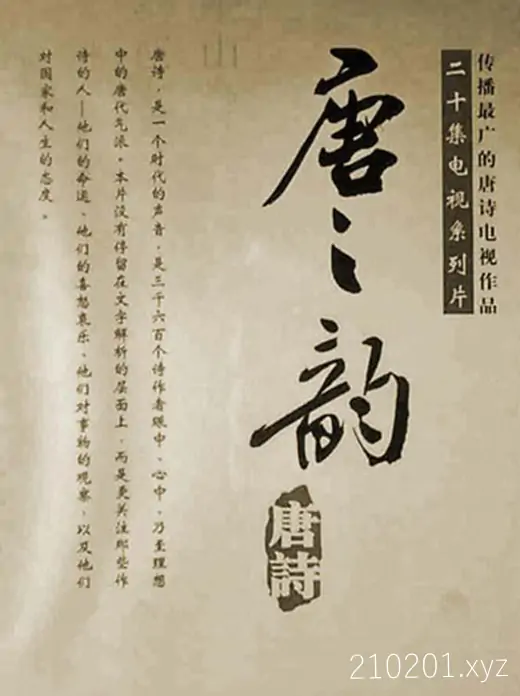 传播最广的唐诗电视作品
二十集电视系列片
唐之韵
唐詩
唐诗，是一个时代的声音，是三千六百个诗作者眼中、心中，乃至理想
中的唐代气派。本片没有停留在文字解析的层面上，而是更关注那些作
诗的人—他们的命运、他们的喜怒哀乐、他们对事物的观察，以及他们
对国家和人生的态度。
210201.xyz